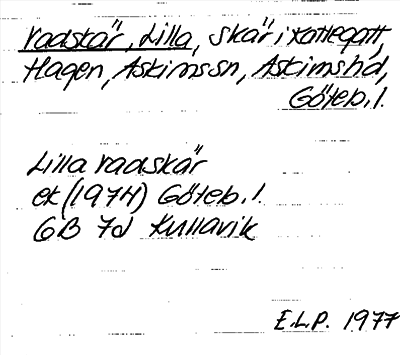 Vadskär, Lilla, skär i Kattegatt,
Hagen, Askims sn, Askims hd,
Göteb. l.
Lilla Vadskär
ek (1974) Göteb. l.
6B 7d Kullavik
E.L.P. 1977